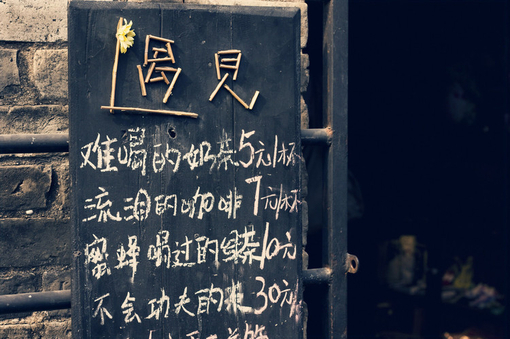 遇見
难喝的奶茶5元/杯
流泪的咖啡7元/杯
蜜蜂喝过的绿茶10元
不会功夫的 30元